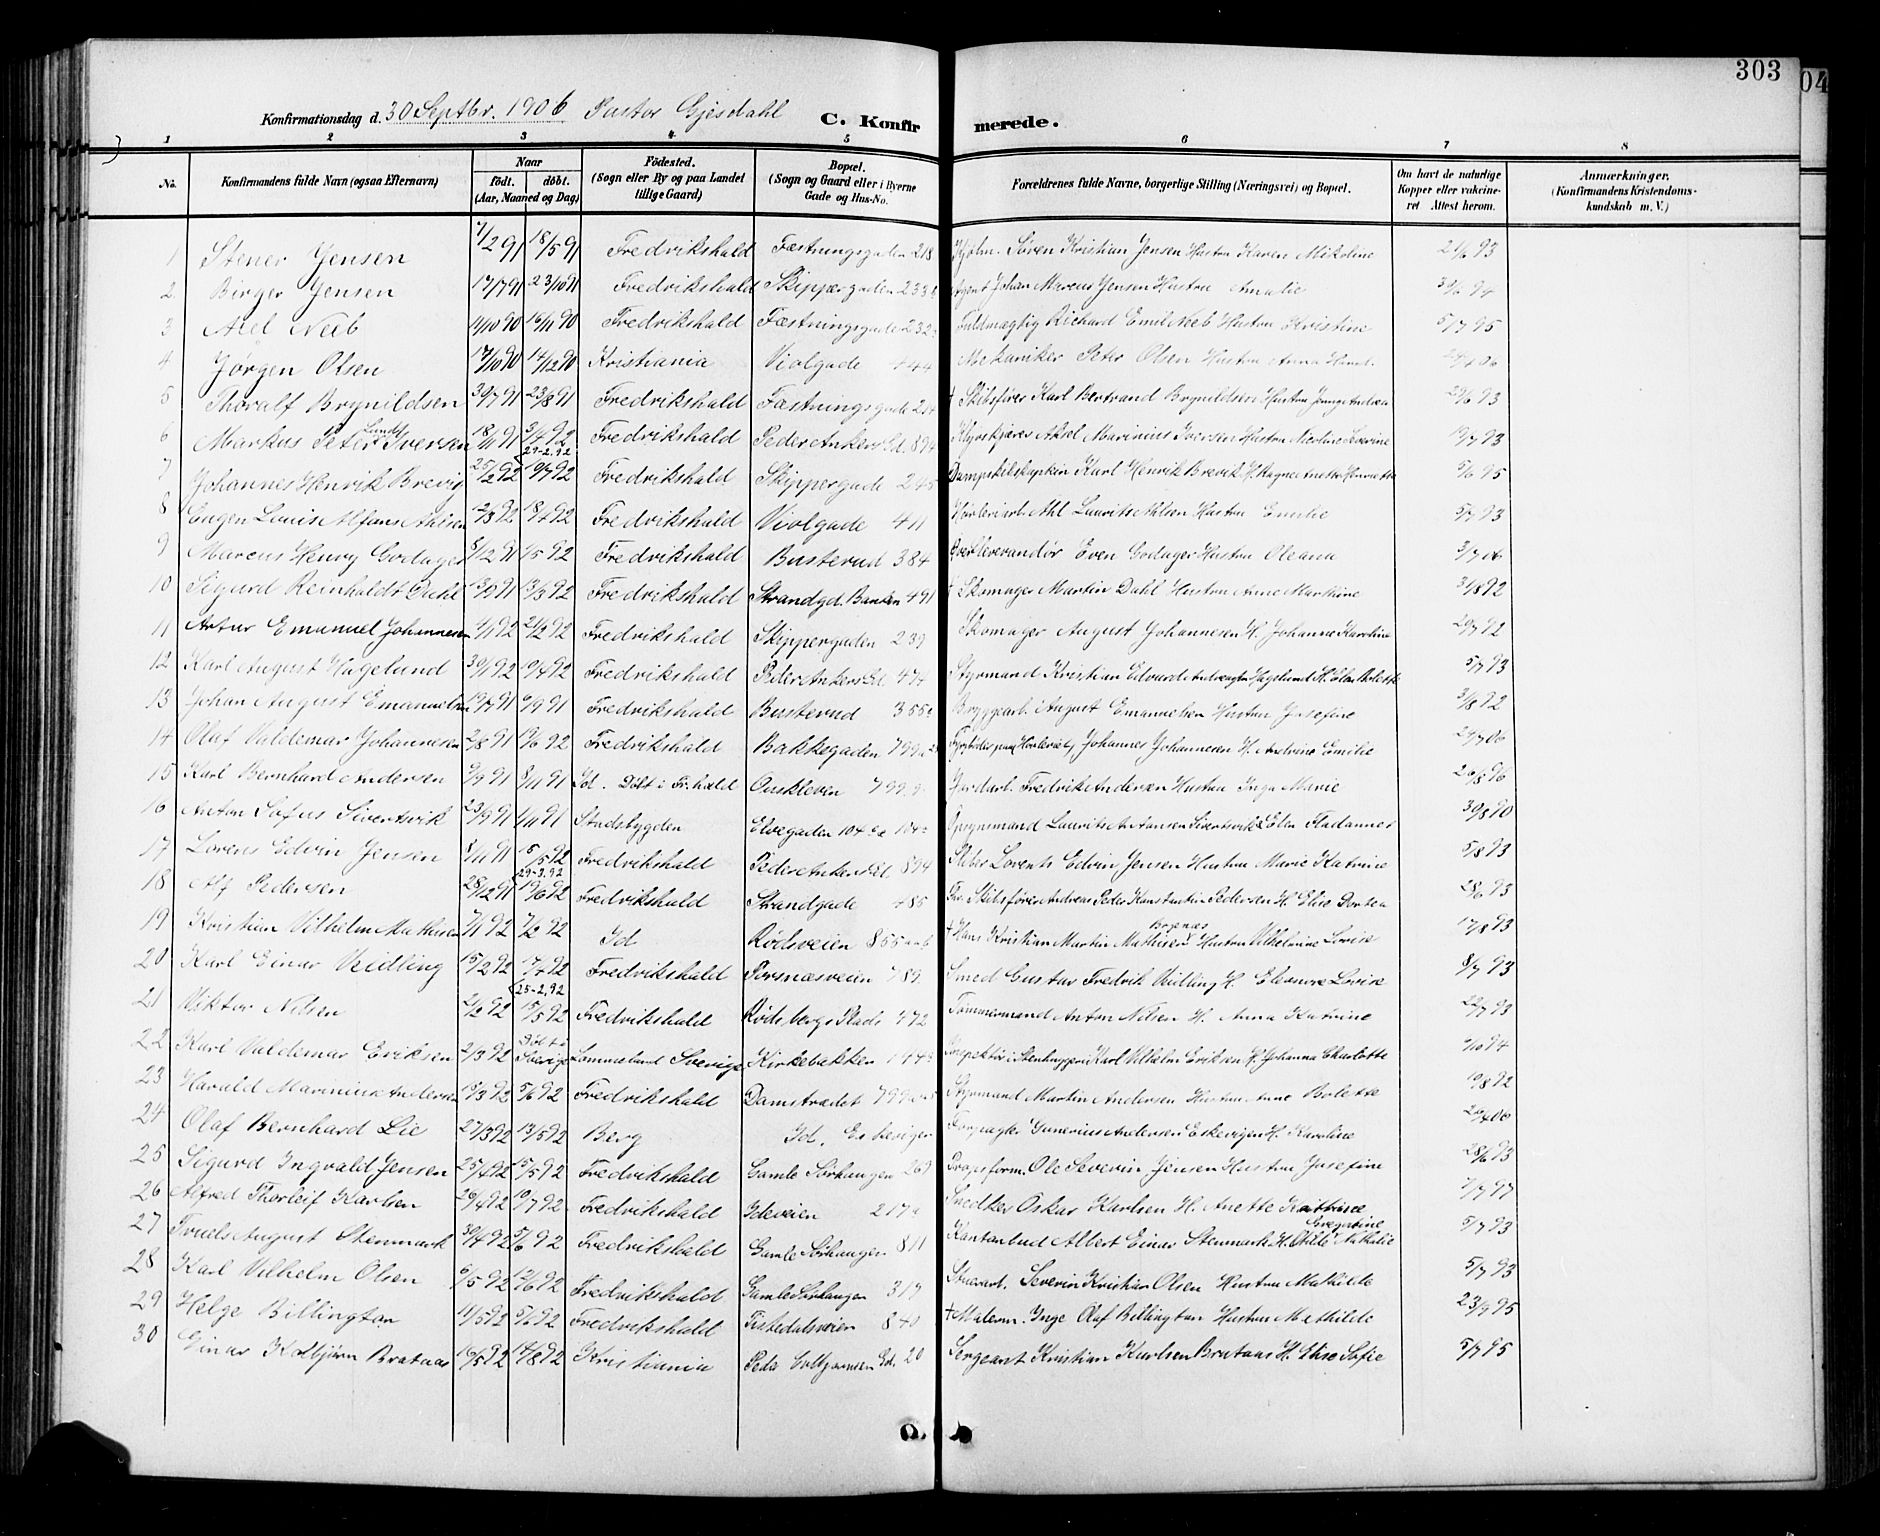 303
04
Konfirmationsdag d. 30 Septbr. 1906 Pastor Gjesdahl C. Konfirmerede.
1 2 3 4 5 6 7 8
No. Konfirmandens fulde Navn (ogsaa Efternavn) Naar født. døbt. (Aar, Maaned og Dag) Födested. (Sogn eller By og paa Landet tillige Gaard) Bopæl. (Sogn og Gaard eller i Byerne Gade og Hus-No. Forældrenes fulde Navne, borgerlige Stilling (Næringsvei) og Bopæl. Om havt de naturlige Kopper eller vaccineret Attest herom. Anmerkninger. (Konfirmandens Kristendomskundskab m. V.)
1 Stener Jensen 7/2 91 18/5 91 Fredrikshald Fæstningsgaden 218 Søren Kristian Jensen Hustru Karen Mikoline 21/6 93
2 Birger Jensen 17/7 91 23/10 91 Fredrikshald Skippergaden 233 b Agent Johan Marcus Jensen Hustru Amalie 30/6 94
3 Axel Neeb 16/11 90 Fredrikshald Fæstningsgade 232 Fuldmægtig Richard Emil Neeb Hustru Kristine 5/7 95
4 Jørgen Olsen 17/10 90 14/12 90 Kristiania Violgade 444 Mekaniker Peter Olsen Hustru Anna
5 Thoralf Brynildsen 30/7 91 23/8 91 Fredrikshald Fæstningsgade 214 † Skibsfører Karl Bertrand Brynildsen Hustru Andrea 29/6 93
6 Markus Peter Lund Iversen 18/11 91 3/4 92 Fredrikshald Peder Ankers Gd. 894 Aksel Marinius Iversen Hustru Nicoline Severine 19/7 93
7 Johannes Henrik Brevig 25/2 92 29-2.92 19/7 92 Fredrikshald Skippergade 245 Karl Henrik Brevik H. Ragne Anette Henriette 5/6 95
8 Eugen Louis Alfons Ahlsen 12/3 92 18/4 92 Fredrikshald Violgade 411 Laurits Ahlsen Hustru Emilie 5/7 93
9 Marcus Henry Godager 8/12 91 1/5 92 Fredrikshald Busterud 384 Even Godager Hustru Oleana 3/7 06
10 Sigurd Reinholdt Dahl 13/9 91 13/3 92 Fredrikshald Strandgd. Banken 491 † Skomager Martin Dahl Hustru Anne Marthine 31/8 92
11 Artur Emanuel Johannesen 1/1 92 21/2 92 Fredrikshald Skippergaden 239 Skomager August Johannesen H. Johanne Karoline 20/7 92
12 Karl August Hagelund 30/1 92 10/4 92 Fredrikshald Peder Ankers Gd. 474 Styrmand Kristian Edvard Hagelund H. Elen Bolette 5/7 93
13 Johan August Emanuelsen 19/7 91 6/9 91 Fredrikshald Busterud 355 a Bryggearb. August Emanuelsen Hustru Josefine 31/8 92
14 Olaf Valdemar Johannesen 2/8 91 19/6 92 Fredrikshald Bakkegaden 799 Johannes Johannesen H. Andrine Emilie
15 Karl Bernhard Andersen 9/9 91 8/11 91 Id. Døbt i Fr.hald Ourskleven 799 Jordarb. Fredrik Andersen Hustru Inga Marie 26/8 96
16 Anton Sofus Sivertsvik 23/9 91 1/11 91 Stadsbygden Elvegaden 104 Opsynsmand Laurits Sivertsvik & Elen 30/8 90
17 Lorens Edvin Jensen 8/11 91 15/5 92 Fredrikshald Peder Ankers Gd. 894 Lorents Edvin Jensen Hustru Marie Katrine 5/8 93
18 Alf Pedersen 28/12 91 29-2.92 19/6 92 Fredrikshald Strandgade 485 Skibsfører Andreas Peder Konstantin Pedersen H. Elise Dortea 28/6 93
19 Kristian Vilhelm Mathisen 7/1 92 7/2 92 Id Rødsveien 855 † Hans Kristian Martin Mathisen Hustru Vilhelmine Lovise 17/8 93
20 Karl Einar Veidling 15/2 92 17/4 92 Fredrikshald Torsnæsveien 789 Smed Gustav Fredrik Veidling H. Eleonore Lovise 8/7 93
21 Viktor Nilsen 2/2 92 25-2.92 15/5 92 Fredrikshald Rødsbergs Plads 472 Tømmermand Anton Nilsen H. Anna Katrine 22/7 93
22 Karl Valdemar Eriksen 2/3 92 Døbt i Sverige Lommeland Sverige Kirkebakken 144 Karl Vilhelm Eriksen H. Johanna Charlotte
23 Harald Marinius Andersen 19/3 92 5/6 92 Fredrikshald Damstrædet 799 Styrmand Martin Andersen Hustru Anne Bolette 19/8 92
24 Olaf Bernhard Lie 27/3 92 13/5 92 Berg Id. Gunerius Andersen Eskevigen H. Karoline
25 Sigurd Ingvald Jensen 25/4 92 15/5 92 Fredrikshald Gamle Sørhaugen 269 Ole Severin Jensen Hustru Josefine 28/6 93
26 Alfred Thorleif Karlsen 26/4 92 10/7 92 Fredrikshald Ideveien 217 a Snedker Oskar Karlsen H. Anette Kathrine 7/7 97
27 Truls August Stenmark 30/4 92 5/6 92 Fredrikshald Gamle Sørhaugen 811 Kantonbud Albert Einar Stenmark H. Otilie Nathalie 5/7 93
28 Karl Vilhelm Olsen 6/5 92 12/6 92 Fredrikshald Gamle Sørhaugen 319 Stuearb. Severin Kristian Olsen Hustru Mathilde 5/7 93
29 Helge Billington 11/5 92 5/6 92 Fredrikshald Tistedalsveien 840 † Malerm. Inge Olaf Billington Hustru Mathilde 23/9 95
30 Einar Kolbjørn Brataas 16/5 92 14/8 92 Kristiania Peder Colbjørnsen Gd. 20 Sergeant Kristian Karlsen Brataas H. Elise Sofie 5/7 95